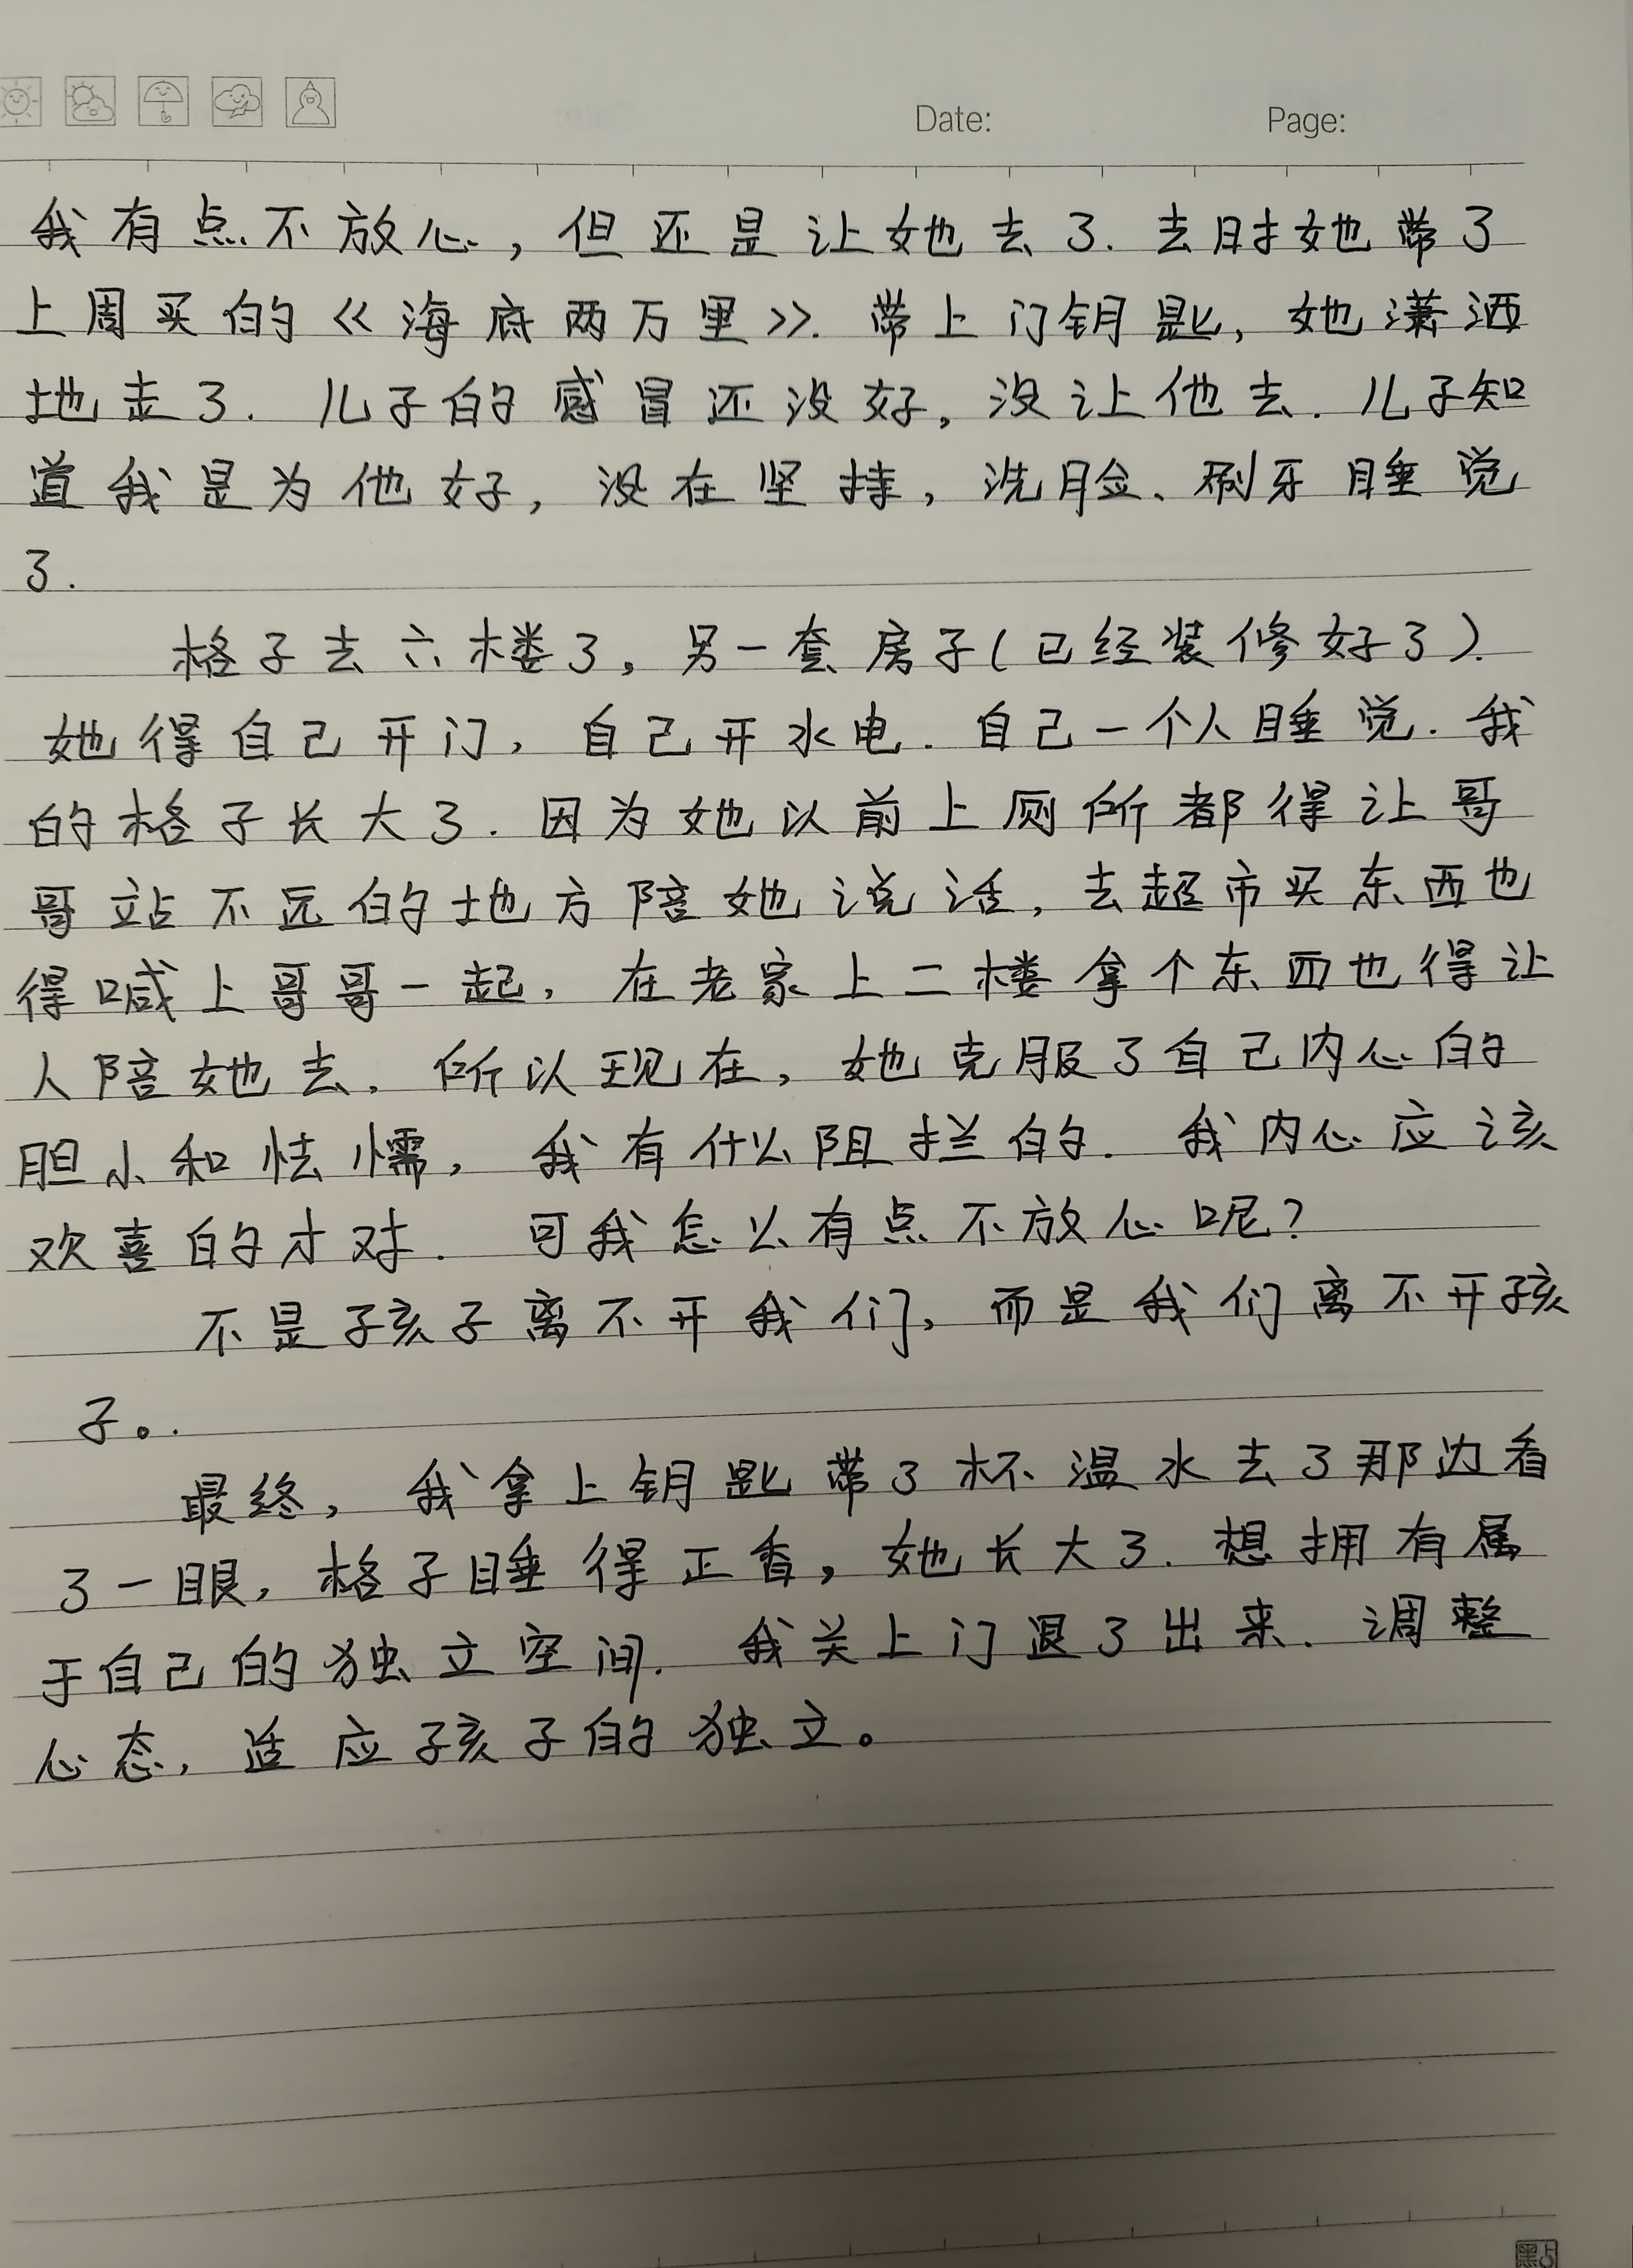 Date: Page:
我有点不放心，但还是让她去了.去时她带了
上周买的《海底两万里》.带上门钥匙，她潇洒
地走了.儿子的感冒还没好，没让他去.儿子知
道我是为他好，没在坚持，洗脸、刷牙睡觉
了.
格子去六楼了，另一套房子(已经装修好了).
她得自己开门，自己开水电.自己一个人睡觉.我
的格子长大了.因为她以前上厕所都得让哥
哥站不远的地方陪她说话，去超市买东西也
得喊上哥哥一起，在老家上二楼拿个东西也得让
人陪她去，所以现在，她克服了自己内心的
胆小和怯懦，我有什么阻拦的.我内心应该
欢喜的才对.可我怎么有点不放心呢?
不是孩子离不开我们，而是我们离不开孩
子。.
最终，我拿上钥匙带了杯温水去了那边看
了一眼，格子睡得正香，她长大了.想拥有属
于自己的独立空间.我关上门退了出来.调整
心态，适应孩子的独立。